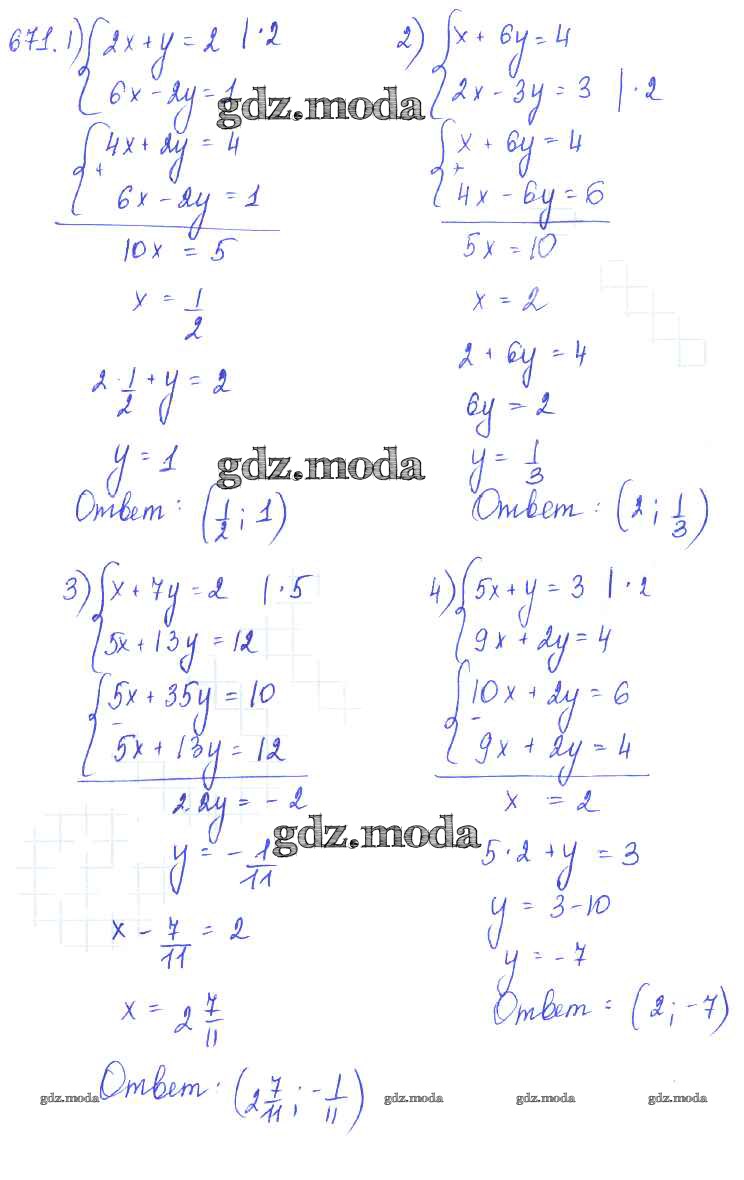 671. 1) { 2x + y = 2 | · 2
6x − 2y = 1
{ 4x + 2y = 4
+
6x − 2y = 1
10x = 5
x = 1/2
2 · 1/2 + y = 2
y = 1
Ответ: (1/2; 1)
2) { x + 6y = 4
2x − 3y = 3 | · 2
{ x + 6y = 4
+
4x − 6y = 6
5x = 10
x = 2
2 + 6y = 4
6y = 2
y = 1/3
Ответ: (2; 1/3)
gdz.moda
gdz.moda
3) { x + 7y = 2 | · 5
5x + 13y = 12
{ 5x + 35y = 10
−
5x + 13y = 12
22y = −2
y = −1/11
x − 7/11 = 2
x = 2 7/11
Ответ: (2 7/11; −1/11)
4) { 5x + y = 3 | · 2
9x + 2y = 4
{ 10x + 2y = 6
−
9x + 2y = 4
x = 2
5 · 2 + y = 3
y = 3 − 10
y = −7
Ответ: (2; −7)
gdz.moda
gdz.moda gdz.moda gdz.moda gdz.moda